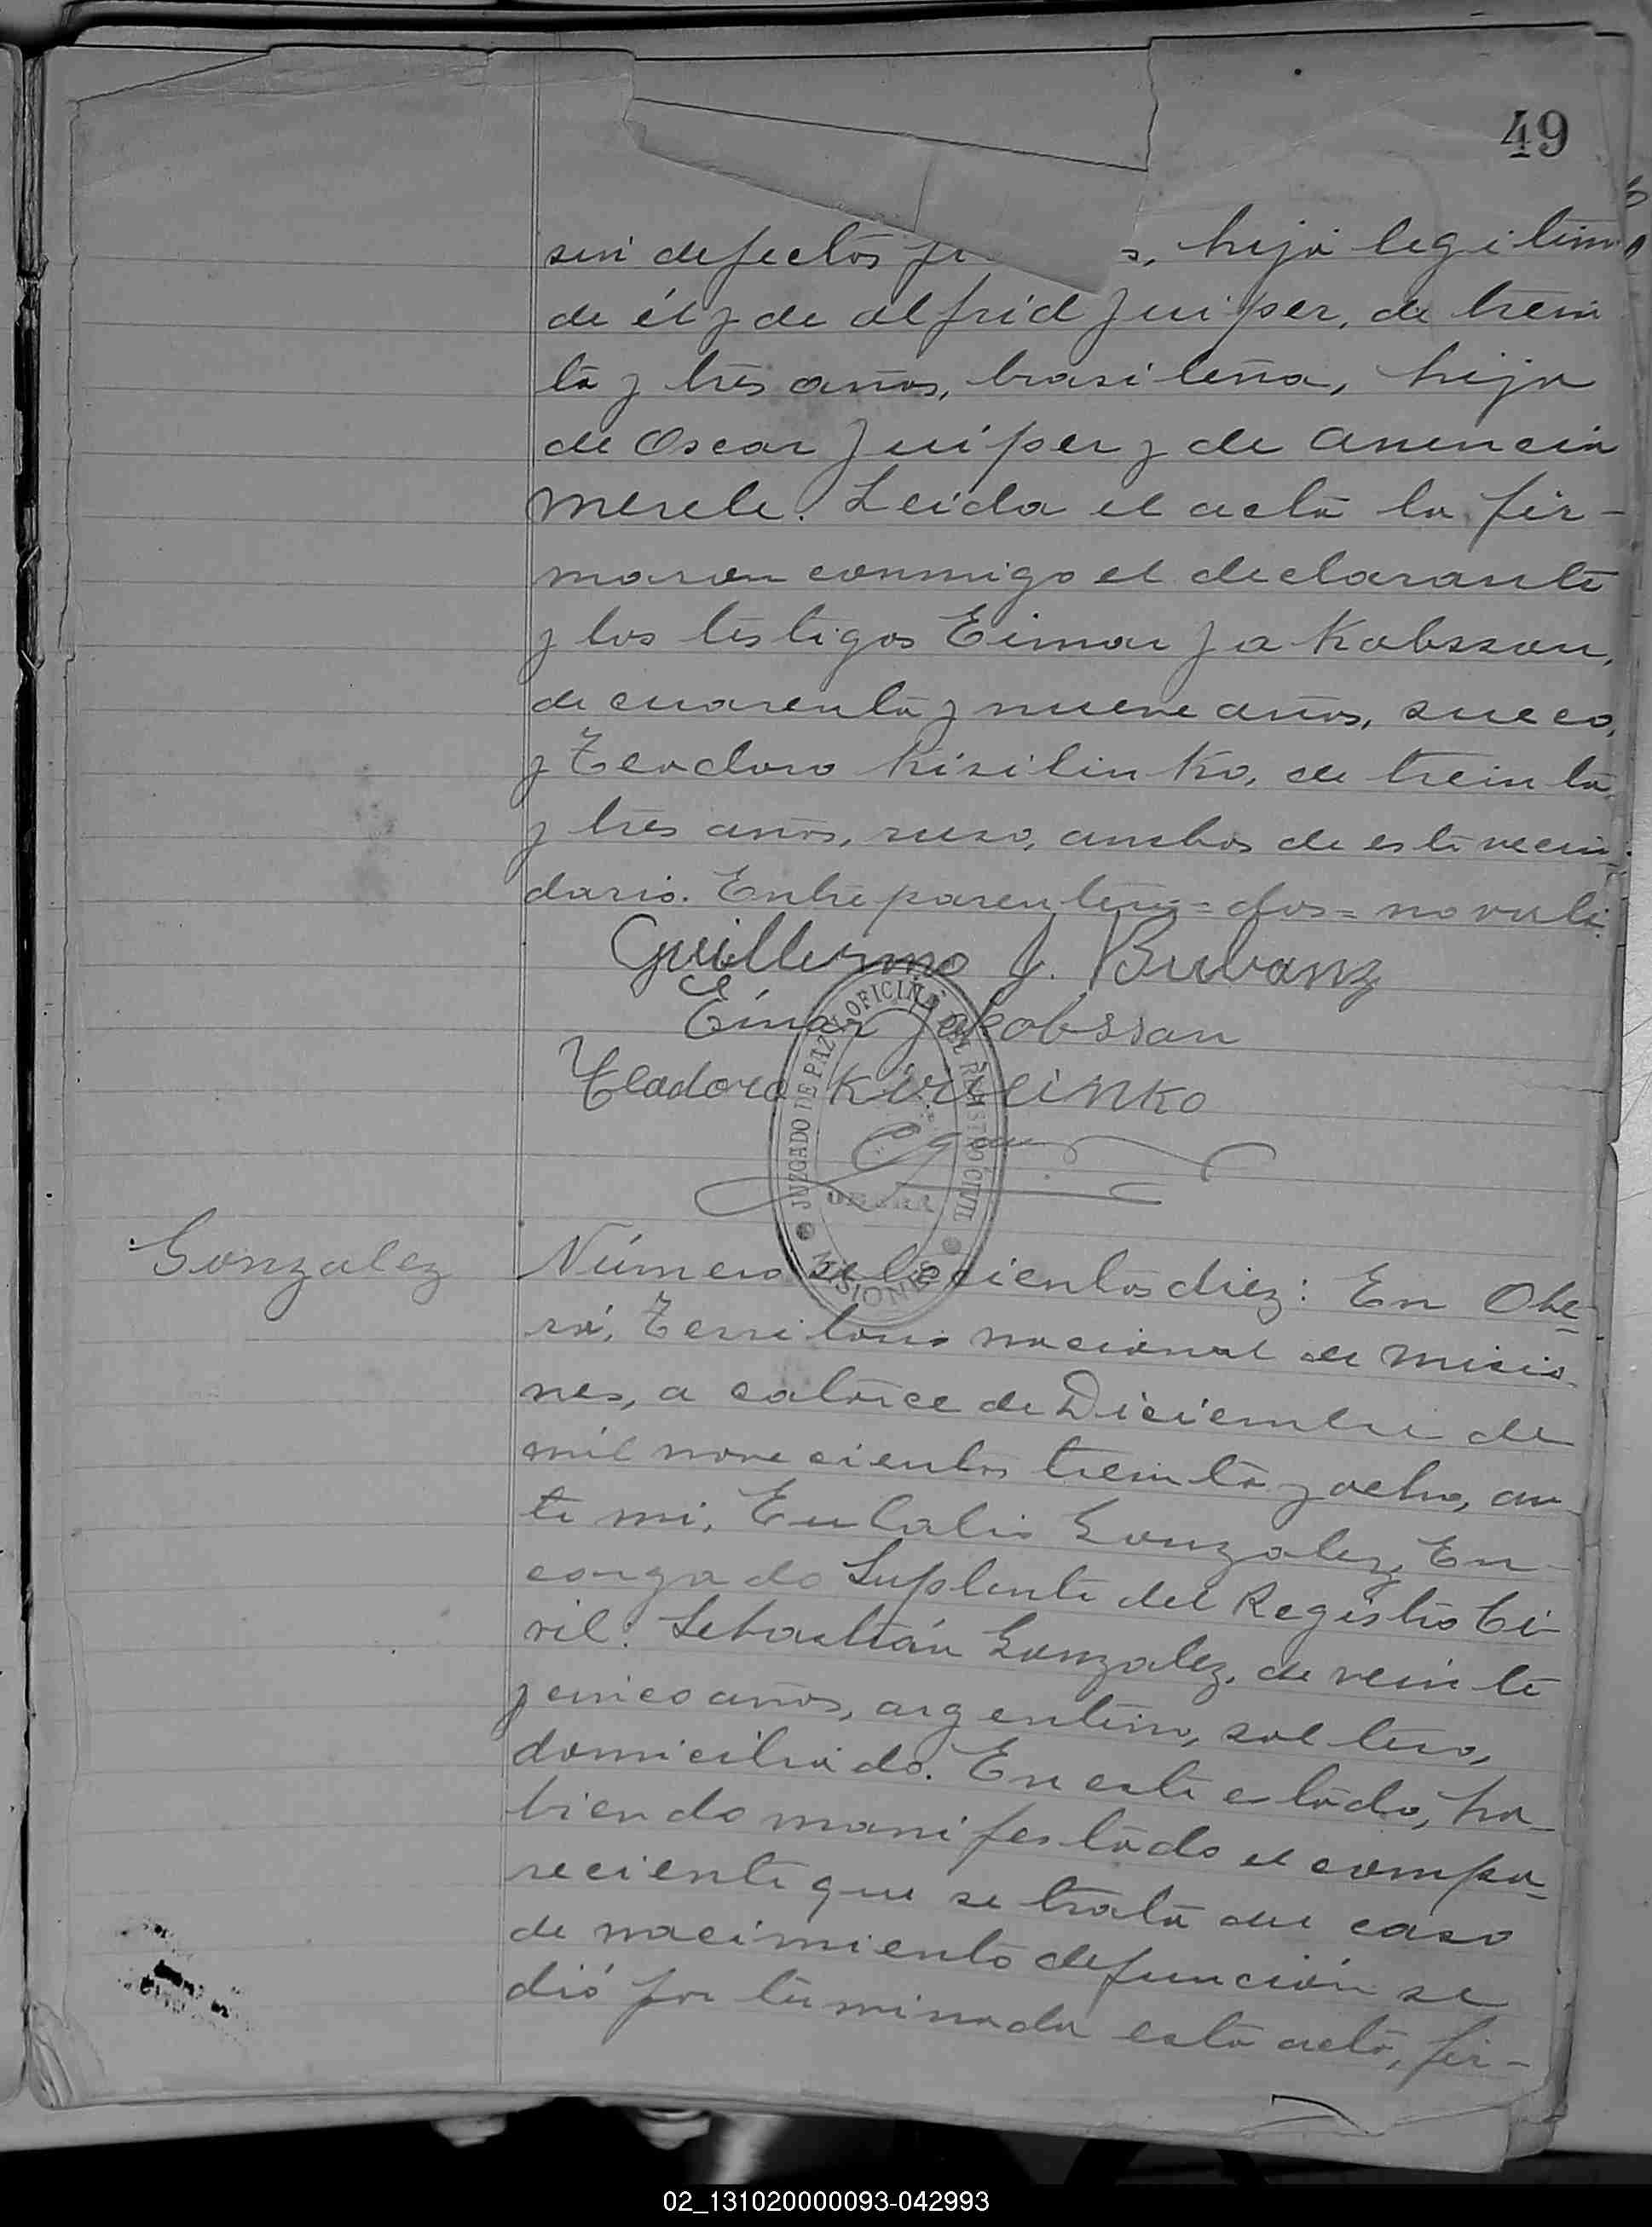 49
sin defectos fí s, hija legitima
de él y de Alfrid Juiper, de trein
ta y tres años, brasileña, hija
de Oscar Juiper y de
Mesele. Leida el acta la fir-
maron conmigo el declarante
y los testigos Eimar Jakobsson,
de cuarenta y nueve años, sueco,
y Teodoro Kisilinko, de treinta
y tres años, ruso, ambos de este vecin-
dario. Entre parentesis = dos = no vale.
Guillermo J. Bubanz
Einar Jakobsson
Teadoro Kirilinko
JUZGADO DE PAZ Y OFICINA DEL REGISTRO CIVIL
OBERÁ
MISIONES
Gonzalez
Número setecientos diez: En Obe-
rá, Territorio nacional de Misio-
nes, a catorce de Diciembre de
mil novecientos treinta y ocho, an-
te mi, Eulalio Gonzalez, En-
cargado Suplente del Registro Ci-
vil: Sebastián Gonzalez, de veinte
y cinco años, argentino, soltero,
domiciliado. En este estado, ha-
biendo manifestado el compa-
reciente que se trata del caso
de nacimiento defunción se
dió por terminada esta acta, fir-
02_131020000093-042993